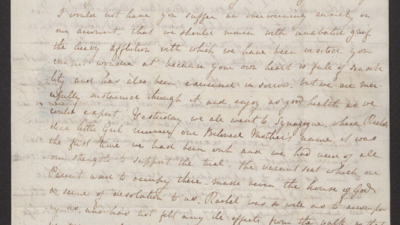 I would not have you suffer an unwavering
our account, that we should mourn with unabated grief
the heavy affliction with which we have been visited you
cannot wonder at because your own heart is full of sensibi
lity and has also been exercised in sorrow. but we are mer
cifully sustained through it and enjoy as good health as we
could expect. Yesterday we all went to Synagogue, where Rachel's
dear little Girl receiving our Beloved Mother's name it was
the first time we had been out and we had need of all
our strength to support the trial. the vacant seat which our
Parent used to occupy there, made even the house of God
a scene of desolation to us. Rachel was
us, who has not felt any ill effects from the walk